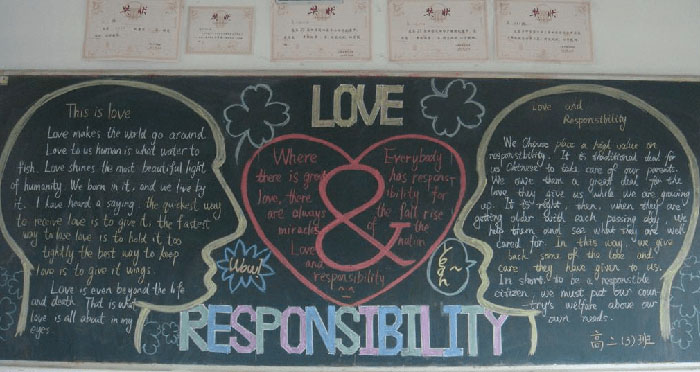 奖状
奖状
奖状
奖状
奖状
LOVE
&
RESPONSIBILITY
This is love
Love makes the world go around.
Love to us human is what water to
fish. Love shines the most beautiful light
of humanity. We born in it, and we live by
it. I have heard a saying: the quickest way
to receive love is to give it, the fastest
way to lose love is to hold it too
tightly the best way to keep
love is to give it wings.
Love is even beyond the life
and death. That is what
love is all about in my
eyes.
Wow!
Where
there is great
love, there
are always
miracles
Love
and
responsibility
Everybody
has respons
ibility for
the fall rise
of the
nation
Love and
Responsibility
We Chinese place a high value on
responsibility. It is traditional deal for
us Chinese to take care of our parents.
We owe them a great deal for the
love they give us while we are growing
up. It is right when, when they are
getting older with each passing day, we
help them and see what they are well
cared for. In this way, we give
back some of the love and
care they have given to us.
In short, to be a responsible
citizen, we must put our coun
try's welfare above our
own needs.
高二(3)班